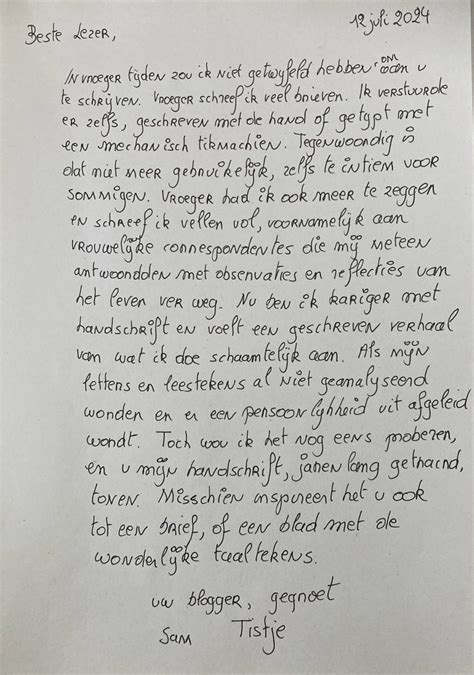 12 juli 2024
Beste Lezer,
In vroeger tijden zou ik niet getwijfeld hebben om aan u
te schrijven. Vroeger schreef ik veel brieven. Ik verstuurde
er zelfs, geschreven met de hand of getypt met
een mechanisch tikmachien. Tegenwoordig is
dat niet meer gebruikelijk, zelfs te intiem voor
sommigen. Vroeger had ik ook meer te zeggen
en schreef ik vellen vol, voornamelijk aan
vrouwelijke correspondentes die mij meteen
antwoordden met observaties en reflecties van
het leven ver weg. Nu ben ik kariger met
handschrift en voelt een geschreven verhaal
van wat ik doe schaamtelijk aan. Als mijn
letters en leestekens al niet geanalyseerd
worden en er een persoonlijkheid uit afgeleid
wordt. Toch wou ik het nog eens proberen,
en u mijn handschrift, jaren lang getraind,
tonen. Misschien inspireert het u ook
tot een brief, of een blad met de
wonderlijke taaltekens.
uw blogger, gegroet
Sam Tistje